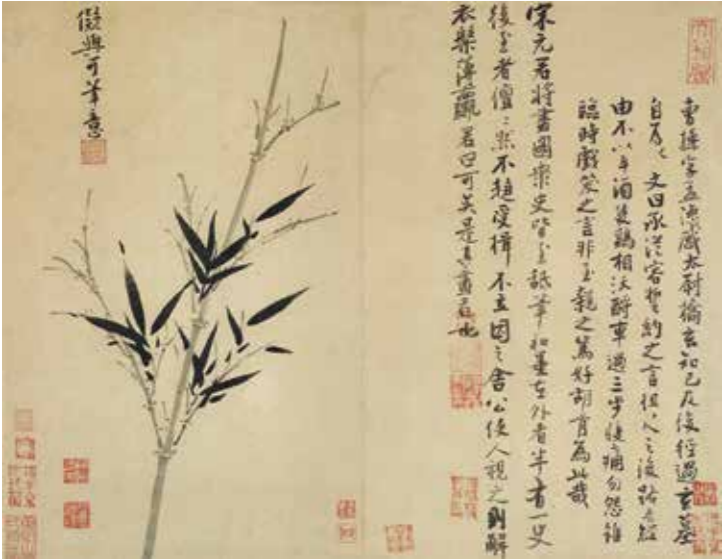 曹操字孟德感太尉橋玄知己及後經過玄墓
自為文曰承從容誓約之言徂之後路有經
由不以斗酒隻鷄相沃酹車過三步腹痛勿怨雖
臨時戲笑之言非至親之篤好胡肯為此哉
宋元君將畫圖衆史皆至舐筆和墨在外者半有一史
後至者儃儃然不趨受揖不立因之舍公使人視之則解
衣槃薄臝君曰可矣是真畫者也
擬與可筆意